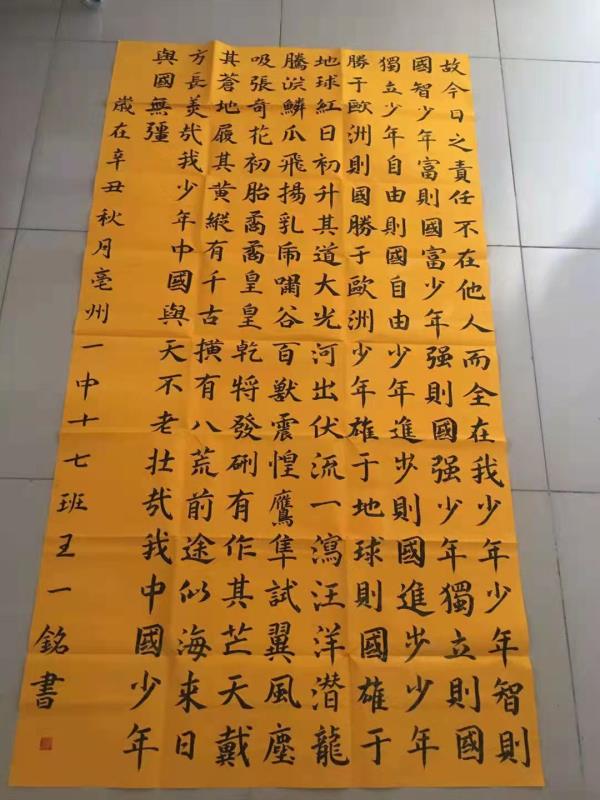 故今日之責任不在他人而全在我少年少年智則
國智少年富則國富少年强則國强少年獨立則國
獨立少年自由則國自由少年進步則國進步少年
勝于歐洲則國勝于歐洲少年雄于地球則國雄于
地球紅日初升其道大光河出伏流一瀉汪洋潜龍
騰淵鱗瓜飛揚乳虎嘯谷百獸震惶鷹隼試翼風塵
吸張奇花初胎矞矞皇皇乾將發硎有作其芒天戴
其蒼地履其黃縱有千古橫有八荒前途似海來日
方長美哉我少年中國與天不老壯哉我中國少年
與國無疆
歲在辛丑秋月亳州一中十七班王一銘書